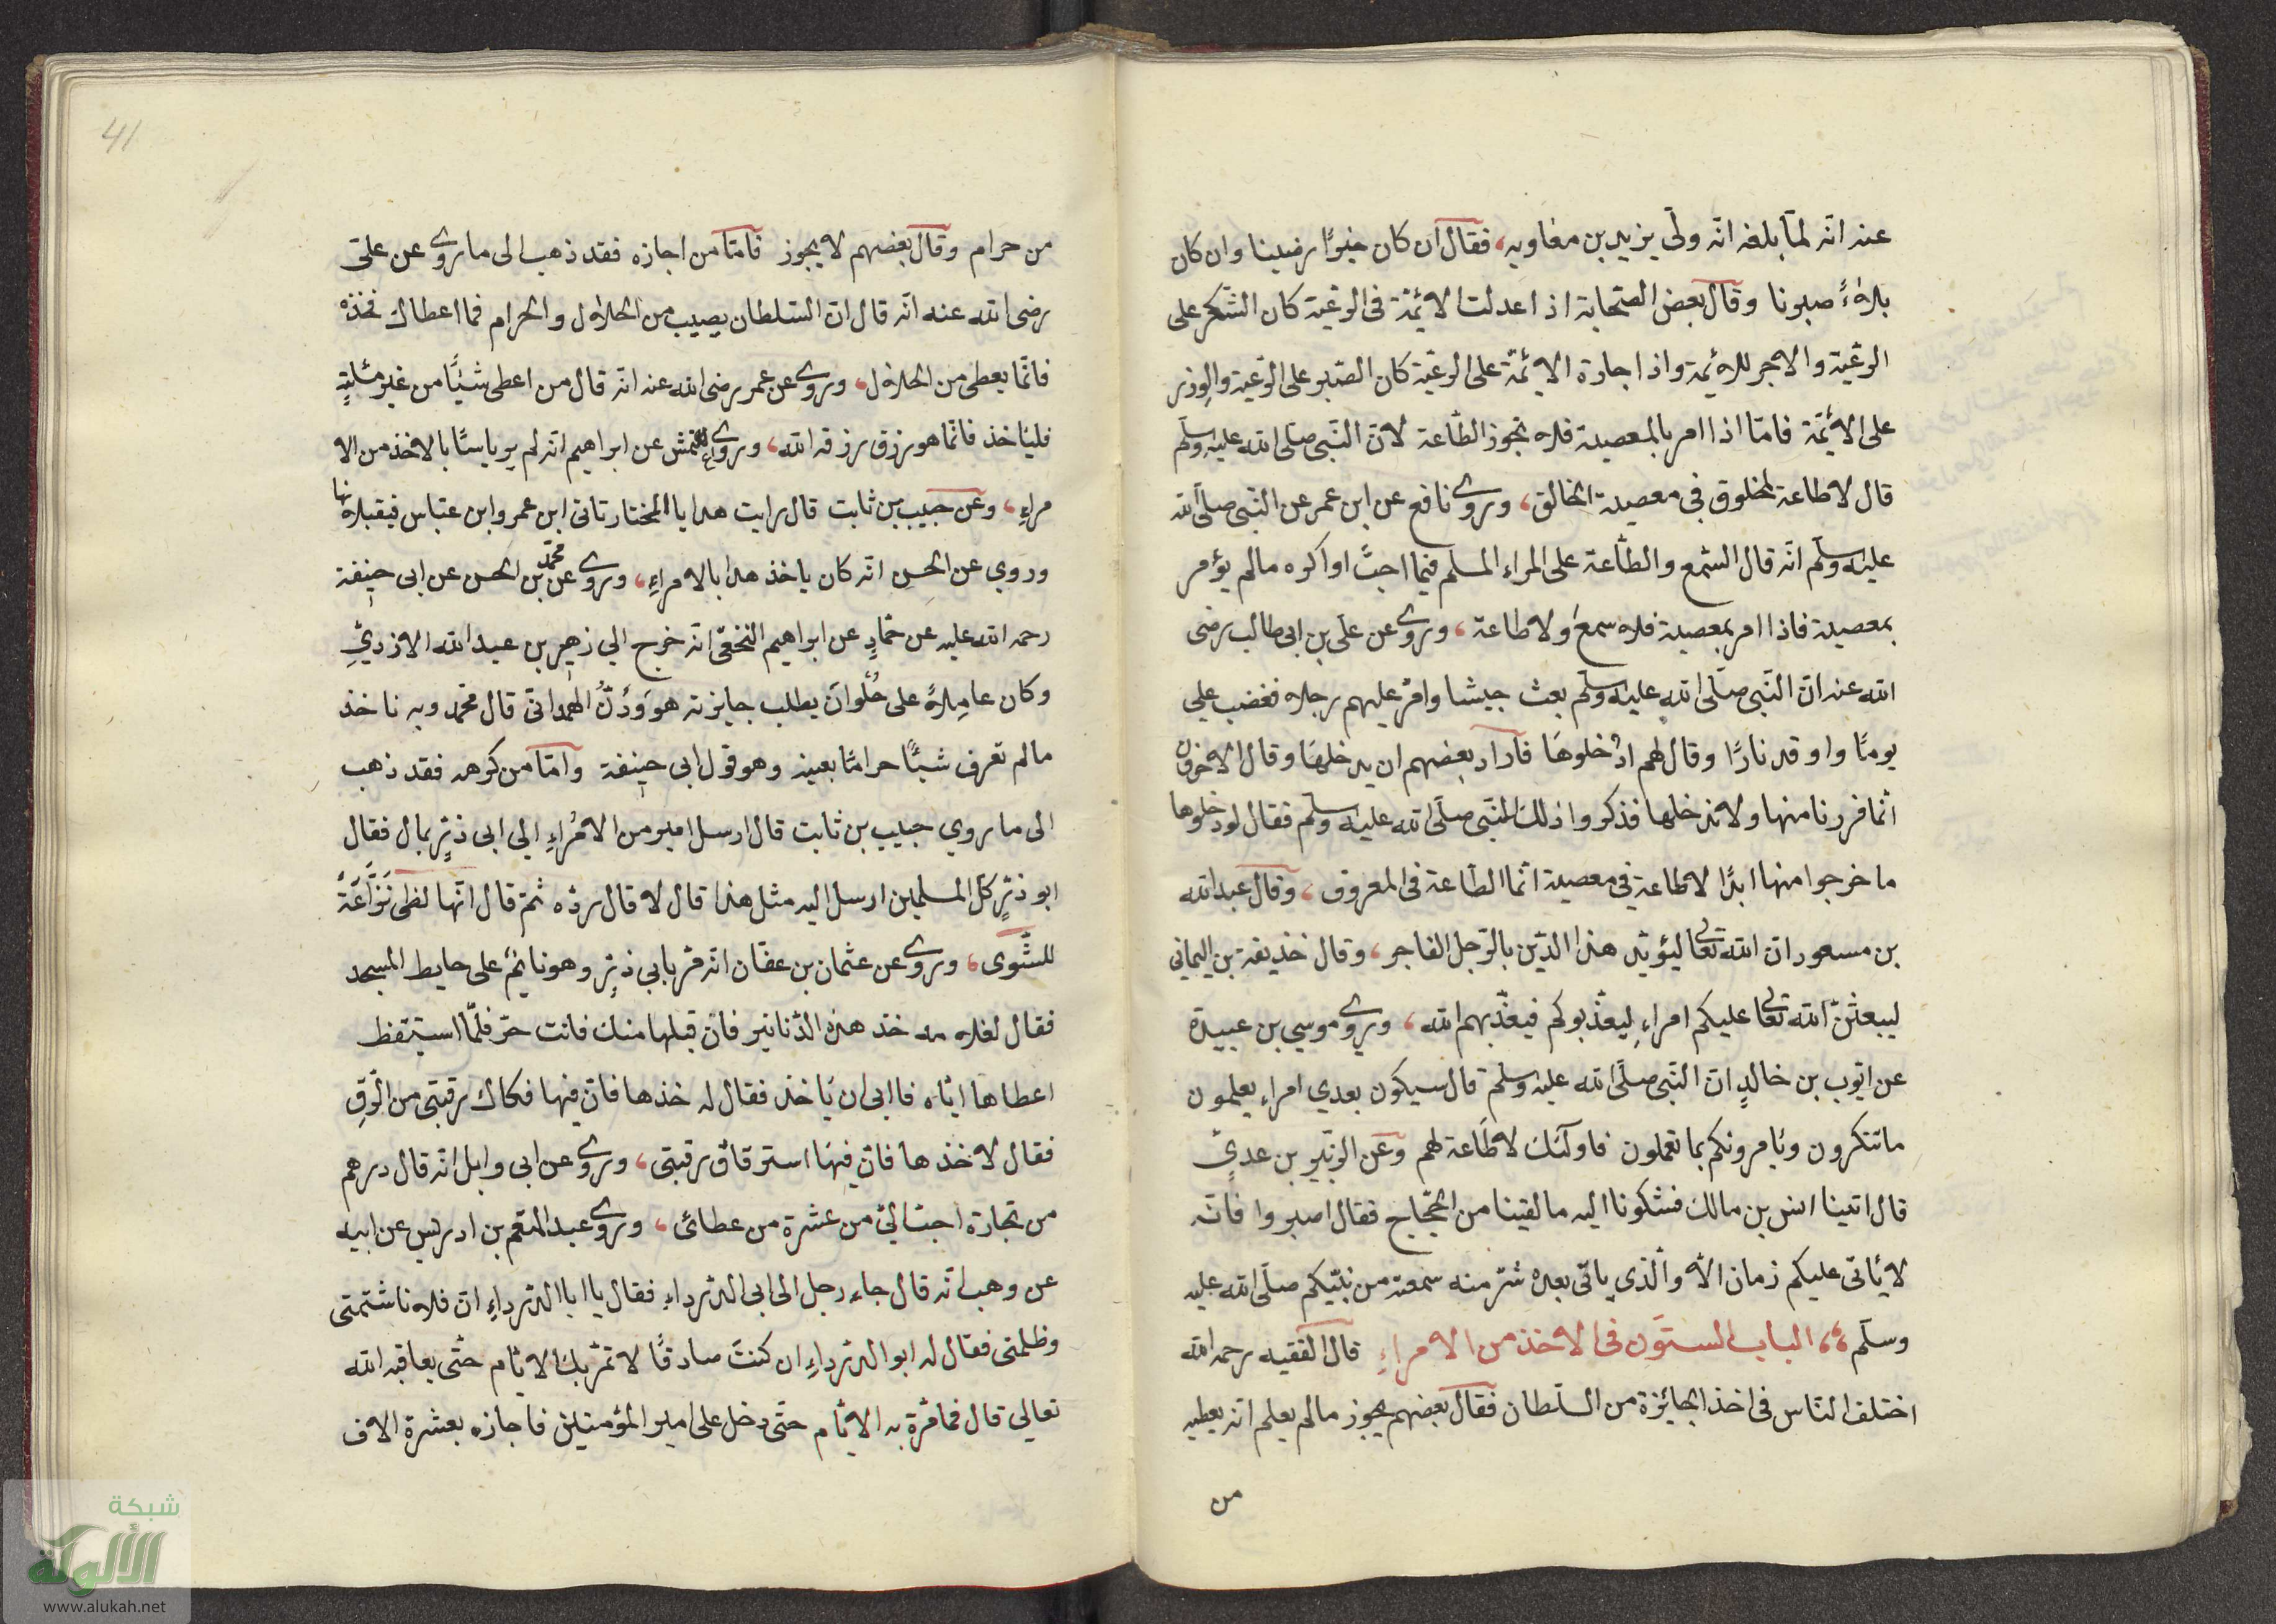 عنه انّه لمّا بلغه انّه ولّى يزيد بن معاوية، فقال ان كان خيرًا رضينا وان كان
بلاءً صبرنا وقال بعض الصّحابة اذا عدلت الائمّة فى الرعيّة كان الشّكر على
الرعيّة والاجر للائمة واذا جارة الائمّة على الرعيّة كان الصّبر على الرّعيّة والوِزر
على الائمّة فامّا اذا امر بالمعصية فلا تجوز الطّاعة لانّ النّبى صلّى الله عليه وسلّم
قال لا طاعة لمخلوق فى معصية الخالق، وروى نافع عن ابن عمر عن النّبى صلّى الله
عليه وسلّم انّه قال السّمع والطّاعة على المراء المسلم فيما احبّ او اكره مالم يؤمر
بمعصية فاذا امر بمعصية فلا سمع ولا طاعة، وروى عن علّى بن ابى طالب رضى
الله عنه انّ النّبى صلّى الله عليه وسلّم بعث جيشا وامّر عليهم رجلا فغضب على
يومًا واوقد نارًا وقال لهم ادْخلوهَا فآراد بعضهم ان يدخلهَا وقال الاخرون
انّما فررنا منها ولا ندخلها فذكروا ذلك للنّبى صلّى الله عليه وسلّم فقال لو دخلوها
ما خرجوا منها ابدًا لا طاعة في معصية انّما الطّاعة فى المعروف، وقال عبد الله
بن مسعود انّ الله تعالى ليؤيّد هذا الدّين بالرّجل الفاجر، وقال خذيفة بن اليمانى
ليبعثنّ الله تعالى عليكم امراءِ ليعذّبوكم فيعذّبهم الله، ويروى موسي بن عبيدة
عن ايّوب بن خالدٍ انّ النّبى صلّى الله عليه وسلّم قال سيكون بعدي امراء يعلمون
ماتنكرون ويأمرونكم بما تعملون فاولئك لا طَاعة لهم وعن الزبير بن عديٍّ
قال اتينا انس بن مالك فشكونا اليه مالقينا من الحجّاج فقال اصبروا فانّه
لا يأتى عليكم زمان الاّ والّذى ياتى بعده شرّ منه سمعته من نبيّكم صلّى الله عليه
وسلّم، الباب الستّون فى الاخذ من الامراءِ قال الفقيه رحمه الله
اختلف النّاس فى اخذ الجائزة من السلطان فقال بعضهم يجوز مالم يعلم انّه يعطيه
من
41
من حرام وقال بعضهم لا يجوز فامّا من اجازه فقد ذهب الى ماروى عن علىّ
رضى الله عنه انّه قال انّ السّلطان يصيب من الحلاول والحرام فما اعطاك فخذهُ
فانّما يعطى من الحلال، وروى عن عمر رضى الله عنه انّه قال من اعطى شيئًا من غير مسْلةٍ
فلياخذ فانّما هو رزق رزقه الله، وروى الاعمش عن ابراهيم انّه لم ير باسًا بالاخذ من الا
مراءِ، وعن حبيب بن ثابت قال رايت هدايا المختار تاتى ابن عمر وابن عبّاس فيقبلانها
وروي عن الحسن انّه كان ياخذ هدايا الامراءِ، وروى عن محمّد بن الحسن عن ابى حنيفة
رحمه الله عليه عن حمّادٍ عن ابراهيم النخعّى انّه خرج الي زهير بن عبد الله الازديِّ
وكان عاملاً على حُلْوانَ يطلب جايزته هو وَذَرُّ الهمدانىّ قال محّمد وبه ناخذ
مالم تعرف شيئًا حرامًا بعينه وهو قول ابى حنيفة وامّا من كرهه فقد ذهب
الى ما روي حبيب بن ثابت قال ارسل امير من الامُراءِ الي ابى ذرٍّ بمال فقال
ابو ذرٍّ كلّ المسلمين ارسل اليه مثل هذا قال لا قال ردّه ثمّ قال انّها لظى نَزّاعَةً
للشّوى، وروى عن عثمان بن عفّان انّه مرّ بابي ذرٍّ وهو نايمٌ على حايط المسجد
فقال لغلامه خذ هذه الدّنانير فان قبلها منك فانت حرّ فلمّا استيقظ
اعطاها ايّاه فاابى ان ياخذ فقال له خذها فانّ فيها فكاك رقبتى من الرّقِ
فقال لا خذها فانّ فيها استرقاق رقبتى، وروى عن ابى وايل انّه قال درهم
من تجارة احبّ الىّ من عشرة من عطائى، وروى عبد المنعم بن ادريس عن ابيه
عن وهب انّه قال جاء رجل الى ابى الدّرداءِ فقال يا ابا الدّرداءِ انّ فلانا شتمتى
وظلمتى فقال له ابو الدّرداءِ ان كنتَ صادقًا لا تمرّ بك الايّام حتّى يعاقبه الله
تعالي قال فمامّرة به الايّام حتّى دخل على امير المؤمنين فاجازه بعشرة الاف
شبكة
الألوكة
www.alukah.net